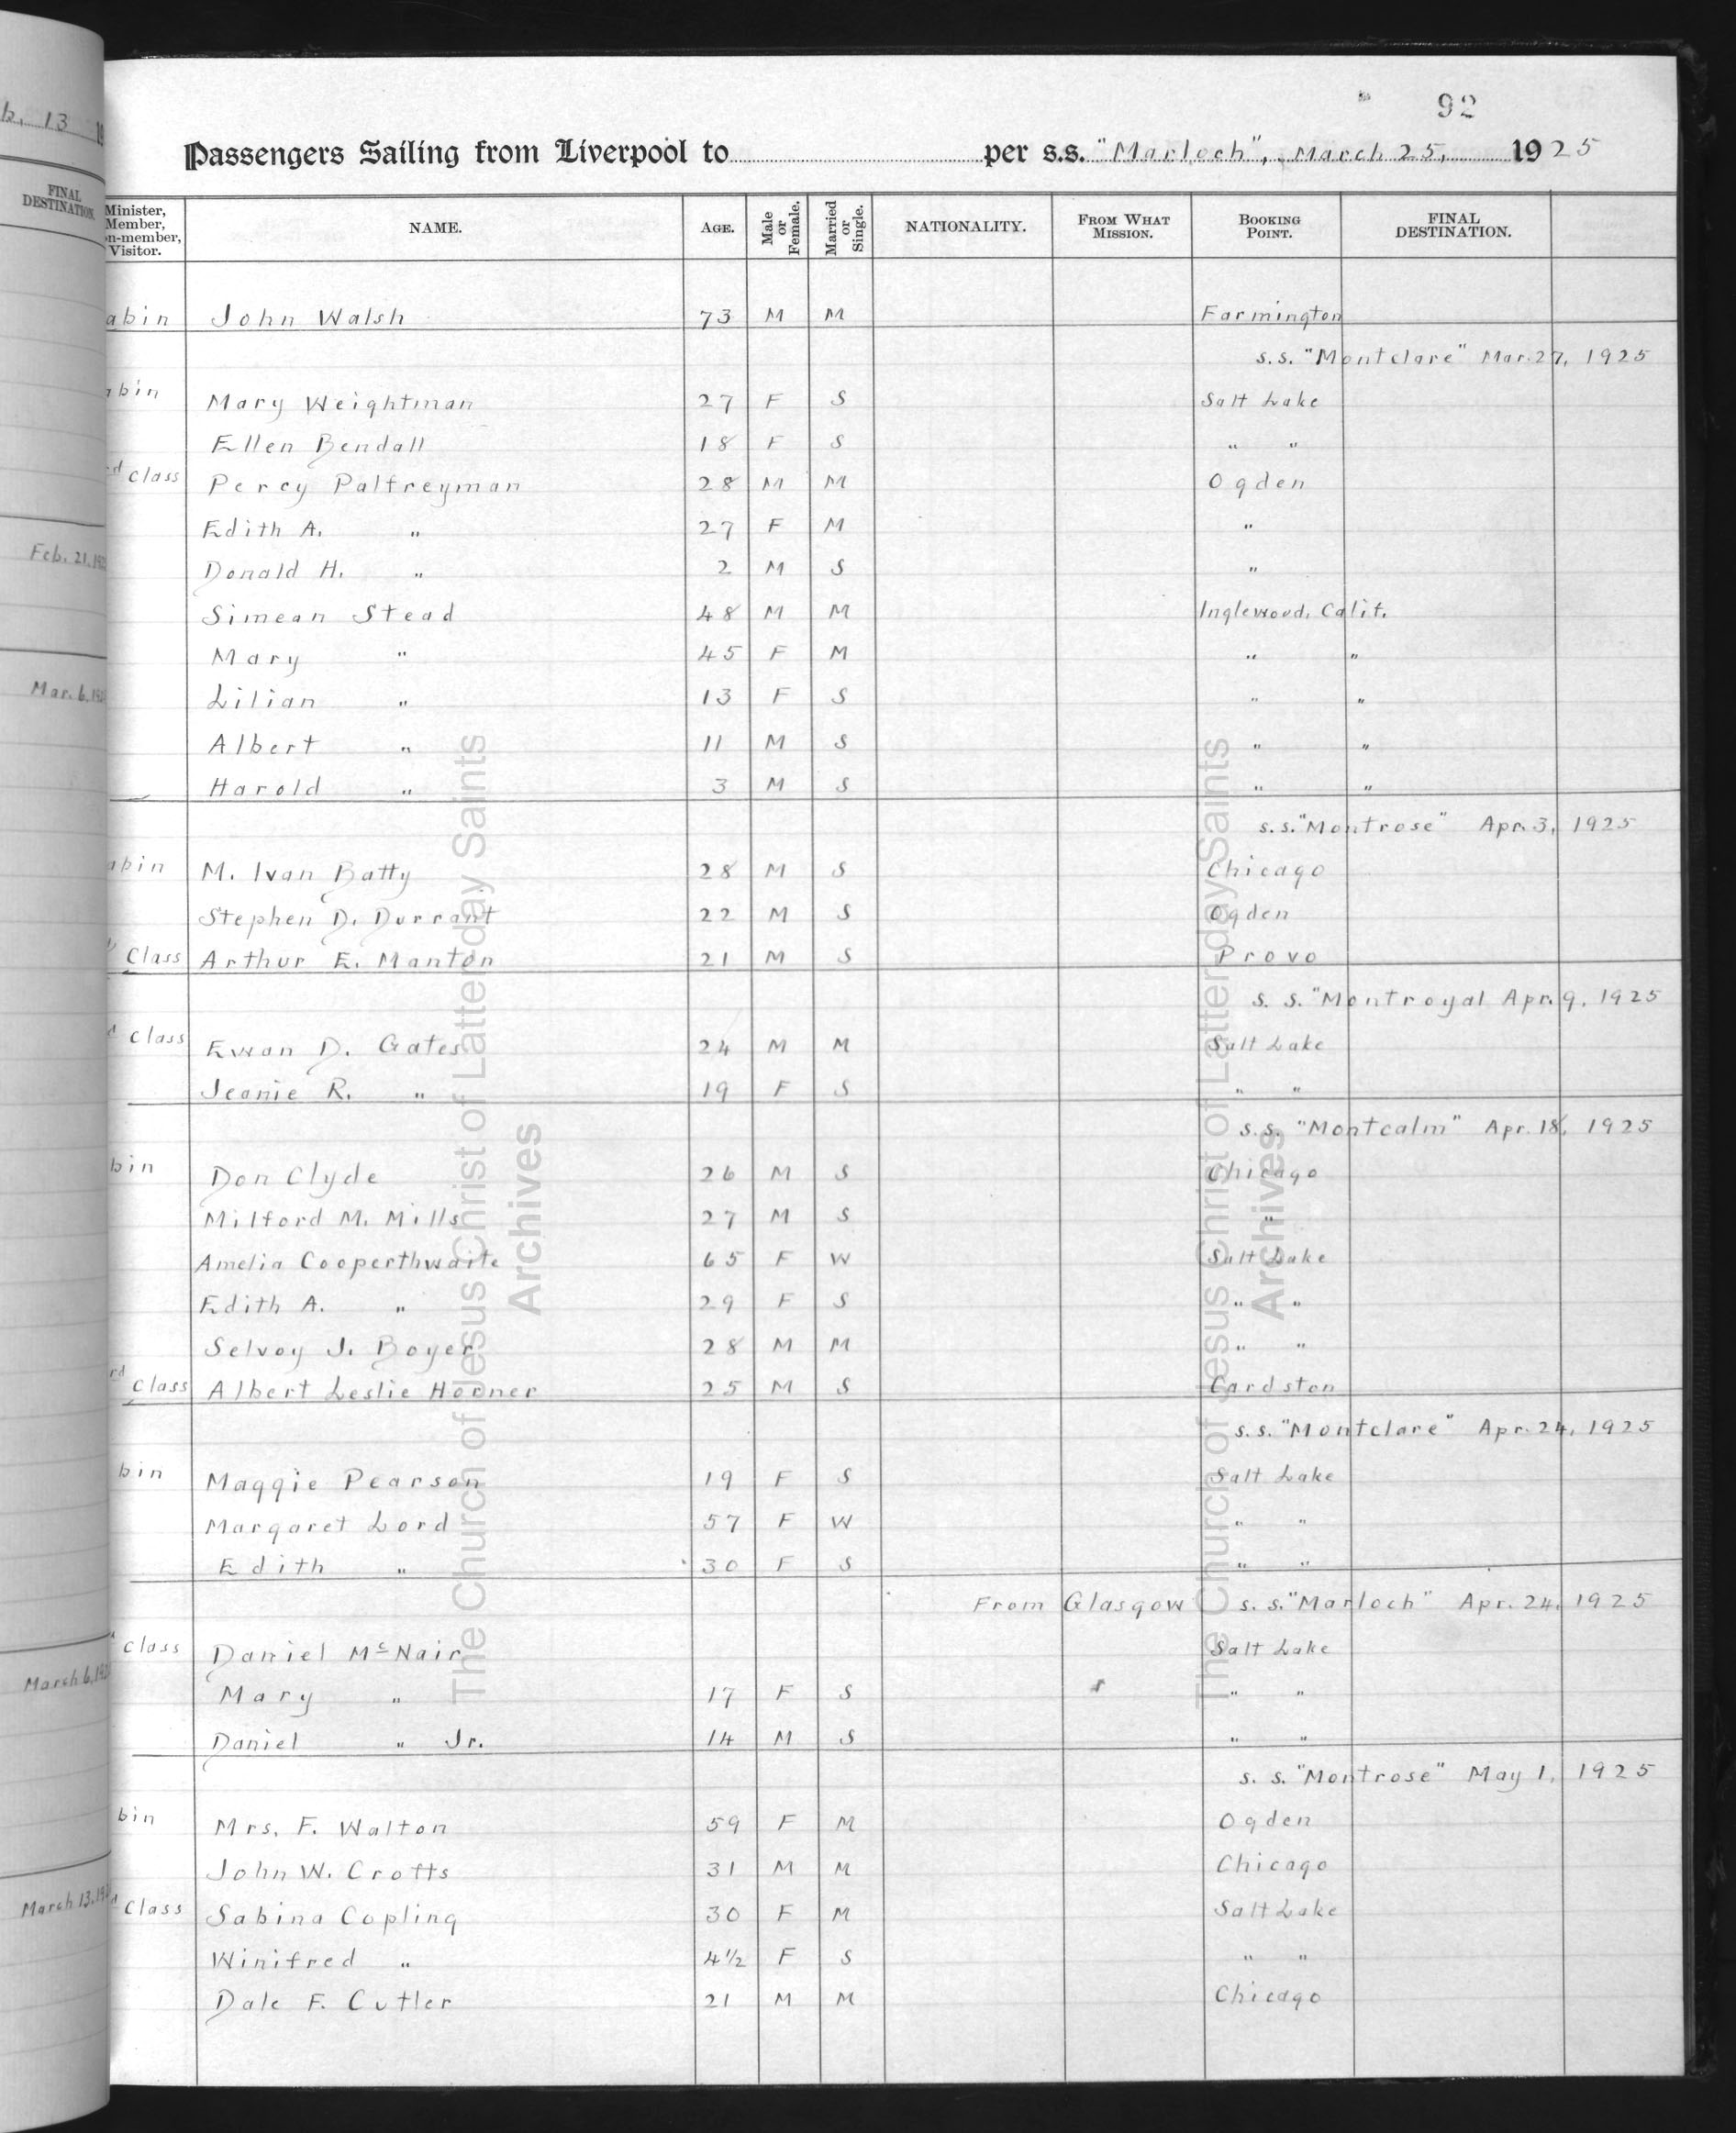 92
Passengers Sailing from Liverpool to per s.s. "Marloch", March 25, 1925
Minister, Member, n-member, Visitor. NAME. AGE. Male or Female. Married or Single. NATIONALITY. FROM WHAT MISSION. BOOKING POINT. FINAL DESTINATION.
abin John Walsh 73 M M Farmington
s.s. "Montclare" Mar. 27, 1925
abin Mary Weightman 27 F S Salt Lake
Ellen Bendall 18 F S " "
rd class Percy Palfreyman 28 M M Ogden
Edith A. " 27 F M "
Donald H. " 2 M S "
Simean Stead 48 M M Inglewood, Calif.
Mary " 45 F M " "
Lilian " 13 F S " "
Albert " 11 M S " "
Harold " 3 M S " "
s.s. "Montrose" Apr. 3, 1925
abin M. Ivan Batty 28 M S Chicago
Stephen D. Durrant 22 M S Ogden
Class Arthur E. Manton 21 M S Provo
s. s. "Montroyal Apr. 9, 1925
d class Ewan D. Gates 24 M M Salt Lake
Jeanie R. " 19 F S " "
s.s. "Montcalm" Apr. 18, 1925
bin Don Clyde 26 M S Chicago
Milford M. Mills 27 M S "
Amelia Cooperthwaite 65 F W Salt Lake
Edith A. " 29 F S " "
Selvoy J. Boyer 28 M M " "
rd class Albert Leslie Horner 25 M S Cardston
s.s. "Montclare" Apr. 24, 1925
bin Maggie Pearson 19 F S Salt Lake
Margaret Lord 57 F W " "
Edith " 30 F S " "
From Glasgow s. s. "Marloch" Apr. 24, 1925
class Daniel McNair Salt Lake
Mary " 17 F S " "
Daniel " Jr. 14 M S " "
s. s. "Montrose" May 1, 1925
bin Mrs. F. Walton 59 F M Ogden
John W. Crotts 31 M M Chicago
d Class Sabina Copling 30 F M Salt Lake
Winifred " 4½ F S " "
Dale F. Cutler 21 M M Chicago
b. 13 19
FINAL DESTINATION
Feb. 21, 192
Mar. 6, 19
March 6, 192
March 13, 19
The Church of Jesus Christ of Latter-day Saints
Archives
The Church of Jesus Christ of Latter-day Saints
Archives